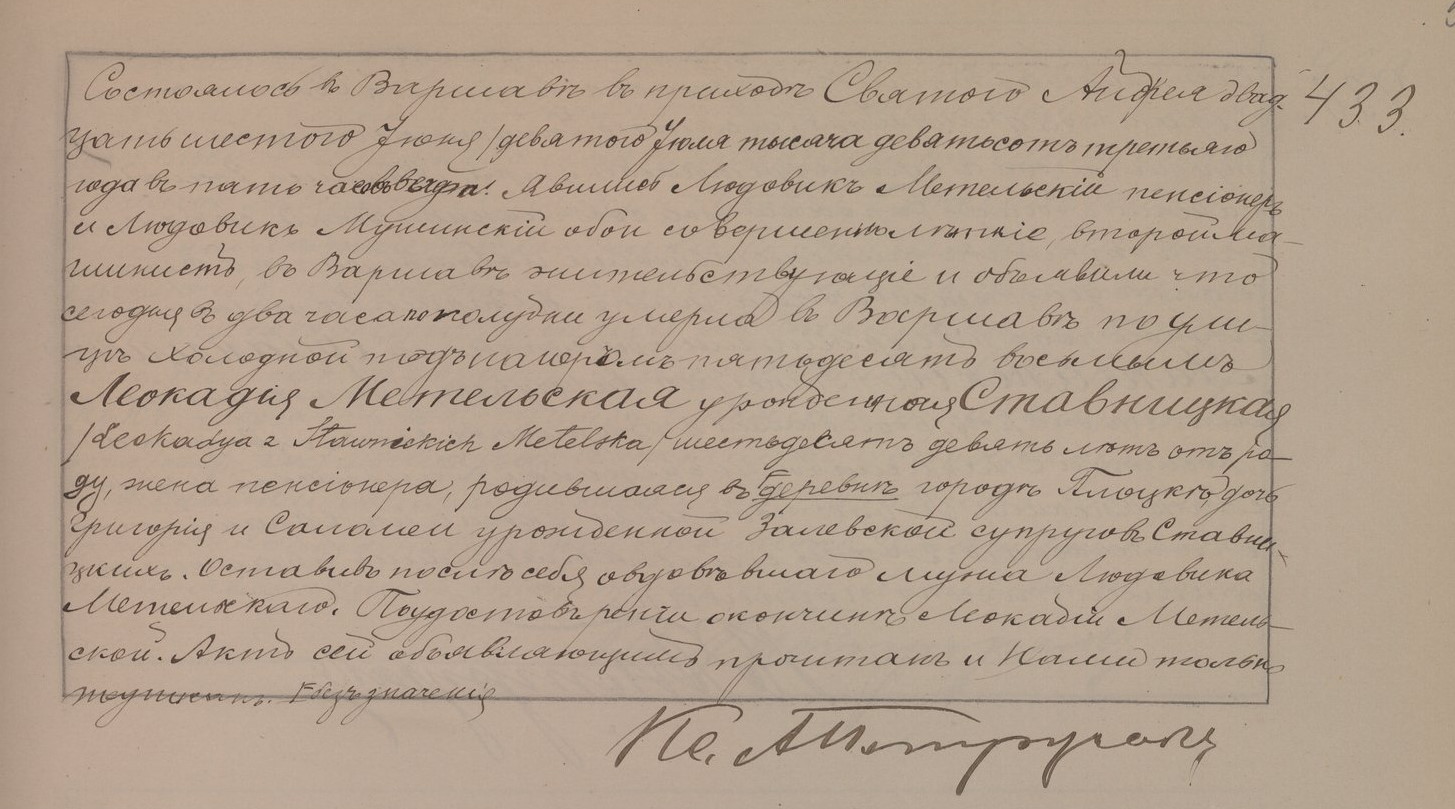 Состоялось въ Варшавѣ въ приходѣ Святого Андрея двад- 433.
цать шестого Іюня /девятого Іюля тысяча девятьсотъ третьяго
года въ пять часовъ вечера. Явились Людовикъ Метельскій пенсіонеръ
и Людовикъ Мушинскій обои совершеннолѣтніе, второй ма-
шинистъ, въ Варшавѣ жительствующіе и объявили что
сегодня въ два часа по полудни умерла въ Варшавѣ по ули-
цѣ Холодной подъ номеромъ пятьдесятъ восьмымъ
Леокадія Метельская урожденная Ставницкая
/Leokadya z Stawnickich Metelska/ шестьдесятъ девять лѣтъ отъ ро-
ду, жена пенсіонера, родившаяся въ деревнѣ городѣ Плоцкѣ, дочь
Григорія и Саломеи урожденной Залевской супруговъ Ставни-
цкихъ. Оставивъ послѣ себя овдовѣвшаго мужа Людовика
Метельскаго. По удостовѣреніи кончинѣ Леокадіи Метель-
ской. Актъ сей объявляющимъ прочитанъ и Нами только
безъ значенія
Кс. А